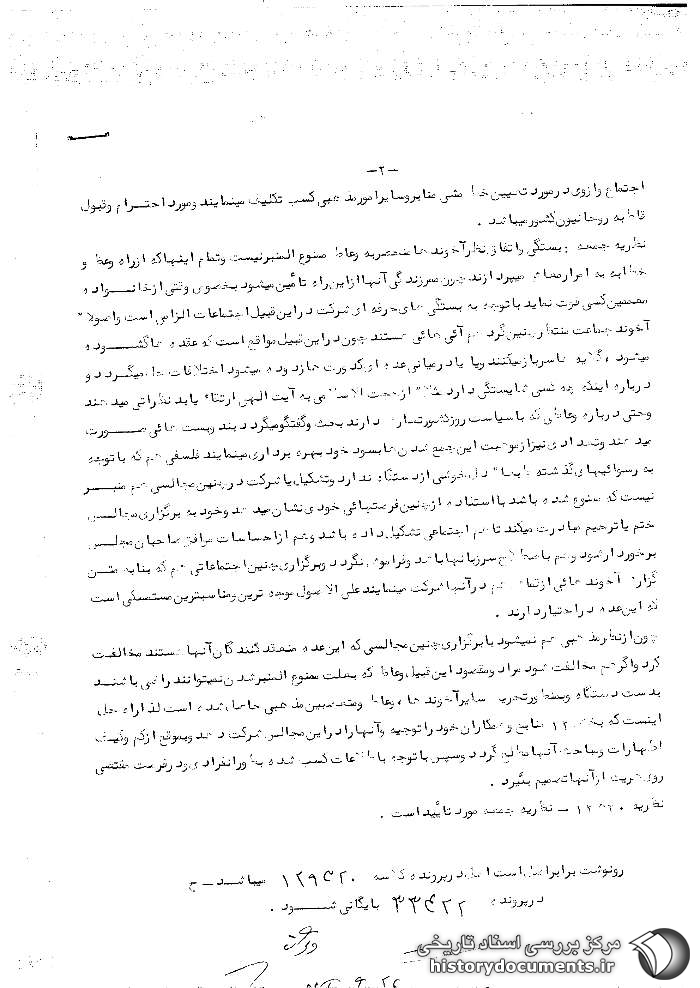 -۲-
اجتماع وازوی در مورد تعیین خط مشی منابر و سایر امور مذهبی کسب تکلیف مینمایند و مورد احترام و قبول
قاطبه روحانیون کشور میباشد .
نظریه جمعه . بستگی و اتفاق نظر آخوندها منحصر به وعاظ ممنوع المنبر نیست و تمام اینها که از راه وعظ و
خطابه به امرار معاش میپردازند چون ممر زندگی آنها از این راه تأمین میشود بخصوص وقتی از خانواده
معممین کسی فوت نماید با توجه به بستگی های حرفه ای شرکت در این قبیل اجتماعات الزامی است و اصولا"
آخوند جماعت منتظر چنین گردهم آئی هائی هستند چون در این قبیل مواقع است که عقده ها گشوده
میشود ، گلایه ها سر باز میکنند و یا با درمیانی عده ای کدورت ها زدوده میشود اختلافات حل میگردد و
درباره اینکه چه کسی شایستگی دارد مثلا" از حجت الاسلامی به آیت الهی ارتقاء یابد نظراتی میدهند
وحتی درباره وعاظی که با سیاست روز کشور تماس دارند بحث و گفتگو میگردد و بست هائی صورت
میدهند و تعدادی نیز از موهبت این جمع شدن ها بسود خود بهره برداری مینمایند فلسفی هم که با توجه
به رسوائیهای گذشته دل خوشی از دستگاه ندارد و تشکیل یا شرکت در چنین مجالسی هم منبر
نیست که ممنوع شده باشد با استفاده از چنین فرصتهائی خودی نشان میدهد و خود به برگزاری مجالس
ختم یا ترحیم مبادرت میکند تا هم اجتماعی تشکیل داده باشد و هم از احساسات موافق صاحبان مجلس
برخوردار شود و هم باصطلاح سر زبانها باشد و فراموش نگردد و برگزاری چنین اجتماعاتی هم که بنا به متن
گزارش آخوند هائی در آنها شرکت مینمایند علی الاصول موجه ترین و مناسبترین مستمسکی است
که این عده در اختیار دارند .
چون از نظر مذهبی هم نمیشود با برگزاری چنین مجالسی که این عده منعقد کنندگان آنها هستند مخالفت
کرد و اگر هم مخالفت شود مراد و مقصود این قبیل وعاظ که بعلت ممنوع المنبر شدن نمیتوانند راضی باشند
بدست دستگاه و بمنظور تحریک سایر آخوند ها ، وعاظ و متعصبین مذهبی حاصل شده است لذا راه حل
اینست که بخش ۱۲ منابع و همکاران خود را توجیه و آنها را در این مجالس شرکت دهد و بموقع از کم و کیف
اظهارات و مباحث آنها مطلع گردد و سپس با توجه باطلاعات کسب شده بطور انفرادی و در فرصت مقتضی
روی هریک از آنها تصمیم بگیرد .
نظریه ۱۲ ه ۲۰ – نظریه جمعه مورد تأیید است .
رونوشت برابر اصل است اصل در پرونده کلاسه ۱۲۹۴۲۰ میباشد – ح
در پرونده ۳۳۴۲۲ بایگانی شود .
مرکز بررسی اسناد تاریخی
historydocuments.ir